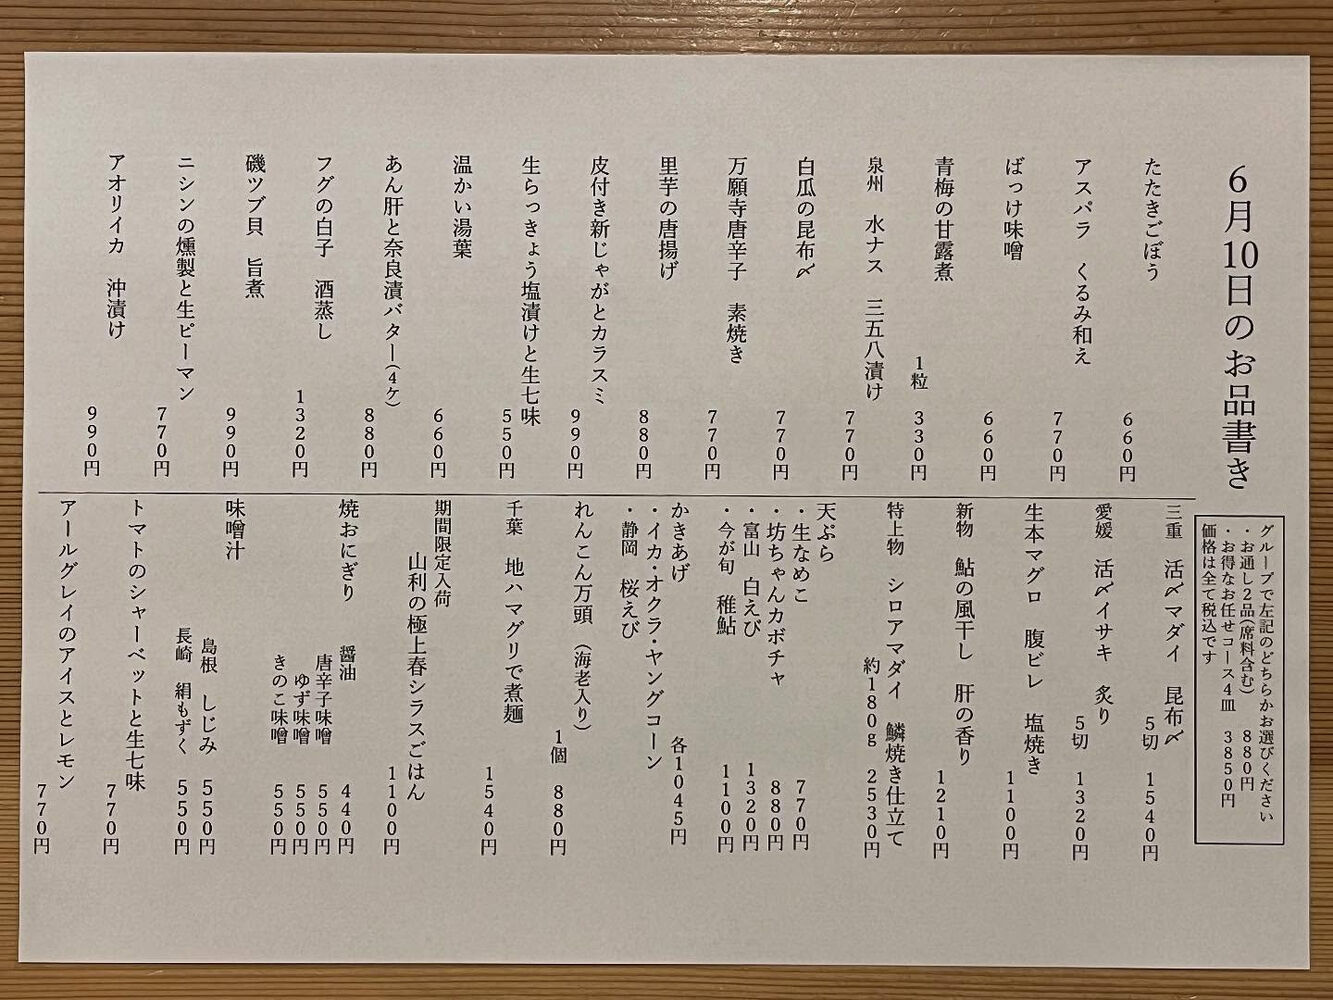 6月10日のお品書き
グループで左記のどちらかお選びください
・お通し2品(席料含む) 880円
・お得なお任せコース4皿 3850円
価格は全て税込です
たたきごぼう 660円
アスパラ くるみ和え 770円
ばっけ味噌 660円
青梅の甘露煮
1粒 330円
泉州 水ナス 三五八漬け 770円
白瓜の昆布〆 770円
万願寺唐辛子 素焼き 770円
里芋の唐揚げ 880円
皮付き新じゃがとカラスミ 990円
生らっきょう塩漬けと生七味 550円
温かい湯葉 660円
あん肝と奈良漬バター(4ケ) 880円
フグの白子 酒蒸し 1320円
磯ツブ貝 旨煮 990円
ニシンの燻製と生ピーマン 770円
アオリイカ 沖漬け 990円
三重 活〆マダイ 昆布〆
5切 1540円
愛媛 活〆イサキ 炙り
5切 1320円
生本マグロ 腹ビレ 塩焼き 1100円
新物 鮎の風干し 肝の香り 1210円
特上物 シロアマダイ 鱗焼き仕立て
約180g 2530円
天ぷら
・生なめこ 770円
・坊ちゃんカボチャ 880円
・富山 白えび 1320円
・今が旬 稚鮎 1100円
かきあげ 各1045円
・イカ・オクラ・ヤングコーン
・静岡 桜えび
れんこん万頭 (海老入り)
1個 880円
千葉 地ハマグリで煮麺 1540円
期間限定入荷
山利の極上春シラスごはん 1100円
焼おにぎり 醤油 440円
唐辛子味噌 550円
ゆず味噌 550円
きのこ味噌 550円
味噌汁
島根 しじみ 550円
長崎 絹もずく 550円
トマトのシャーベットと生七味 770円
アールグレイのアイスとレモン 770円